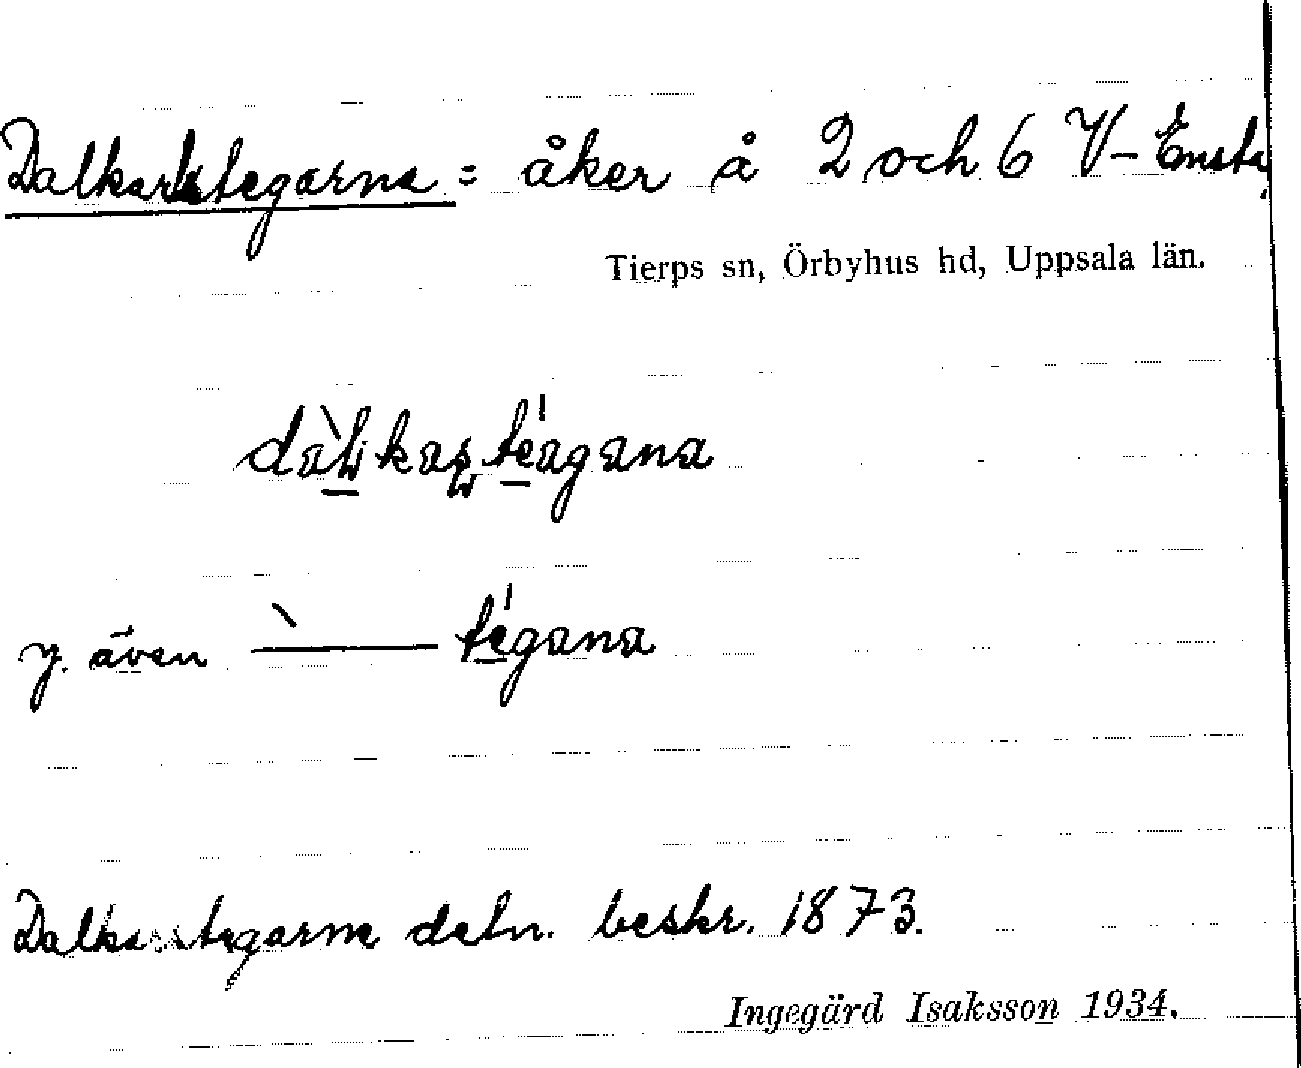 Dalkarlstegarna = åker å 2 och 6 V-Ensta
Tierps sn, Örbyhus hd, Uppsala län.
y. även ` — tégana
Dalkarstegarne detn. beskr. 1873.
Ingegärd Isaksson 1934.